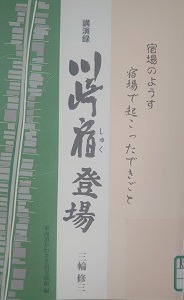 宿場のようす
宿場で起こったできごと
講演録
川崎宿登場
しゅく
三輪修三